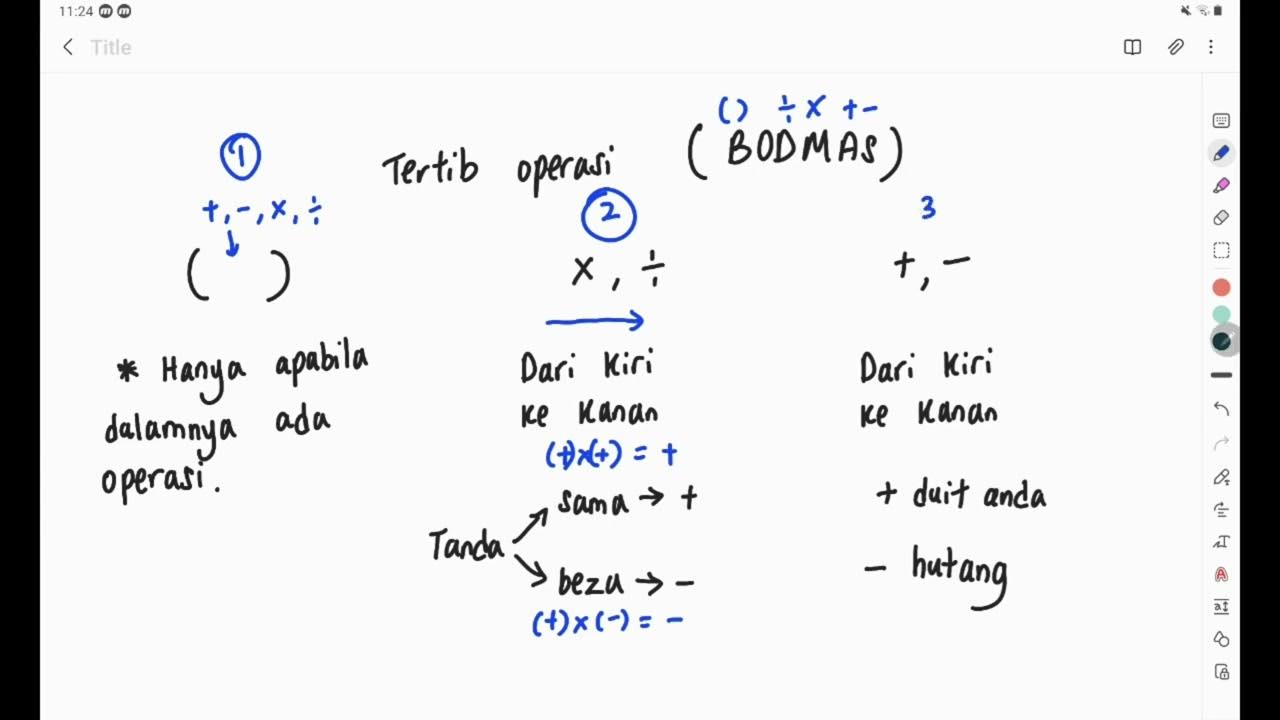 11:24
Title
() ÷ × + -
Tertib operasi (BODMAS)
1
+, -, ×, ÷
( )
* Hanya apabila
dalamnya ada
operasi.
2
×, ÷
Dari Kiri
ke Kanan
(+)×(+) = +
Tanda
sama → +
beza → -
(+)×(-) = -
3
+, -
Dari Kiri
ke Kanan
+ duit anda
- hutang